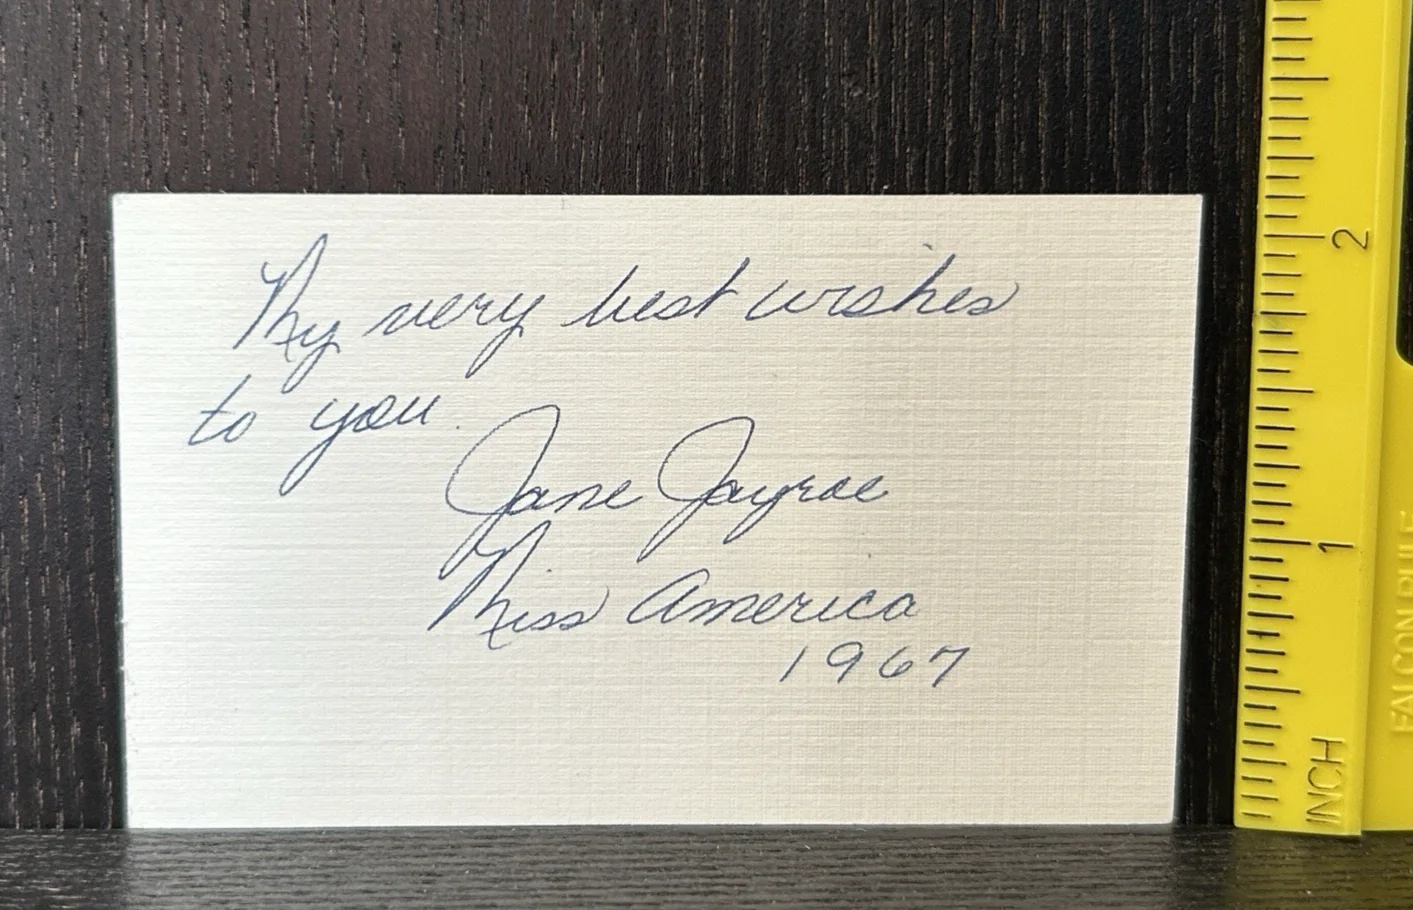 My very best wishes
to you.
Jane Jayroe
Miss America
1967
2
1
INCH
FALCON RULE